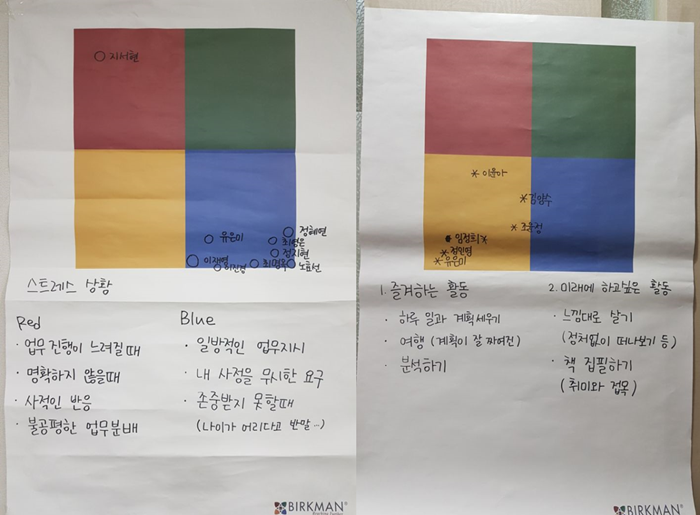 지서현
정혜연
유은미
최정은
정지현
최명옥
노효선
스트레스 상황
Red
· 업무 진행이 느려질 때
· 명확하지 않을때
· 사적인 반응
· 불공평한 업무분배
Blue
· 일방적인 업무지시
· 내 사정을 무시한 요구
· 존중받지 못할때
(나이가 어리다고 반말...)
BIRKMAN®
이윤아
김영수
조윤정
임정희
정인영
유은미
1. 즐겨하는 활동
· 하루 일과 계획 세우기
· 여행 (계획이 잘 짜여진)
· 분석하기
2. 미래에 하고싶은 활동
· 느낌대로 살기
(정처없이 떠나보기 등)
· 책 집필하기
(취미와 접목)
BIRKMAN®